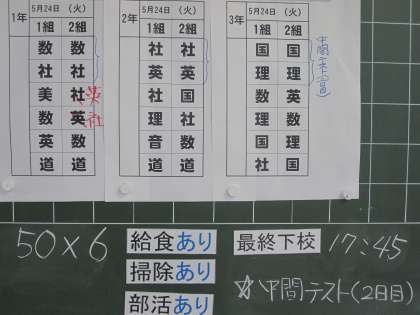 1年 5月24日（火）
1組 2組
数 数
社 社
美 社 英
数 英 社
英 数
道 道
2年 5月24日（火）
1組 2組
社 社
英 英
社 国
理 理
音 数
道 道
3年 5月24日（火）
1組 2組
国 国
理 理
数 英
理 数
国 理
社 国
中間テスト(2日目)
50×6
給食あり
掃除あり
部活あり
最終下校 17:45
☆中間テスト(2日目)